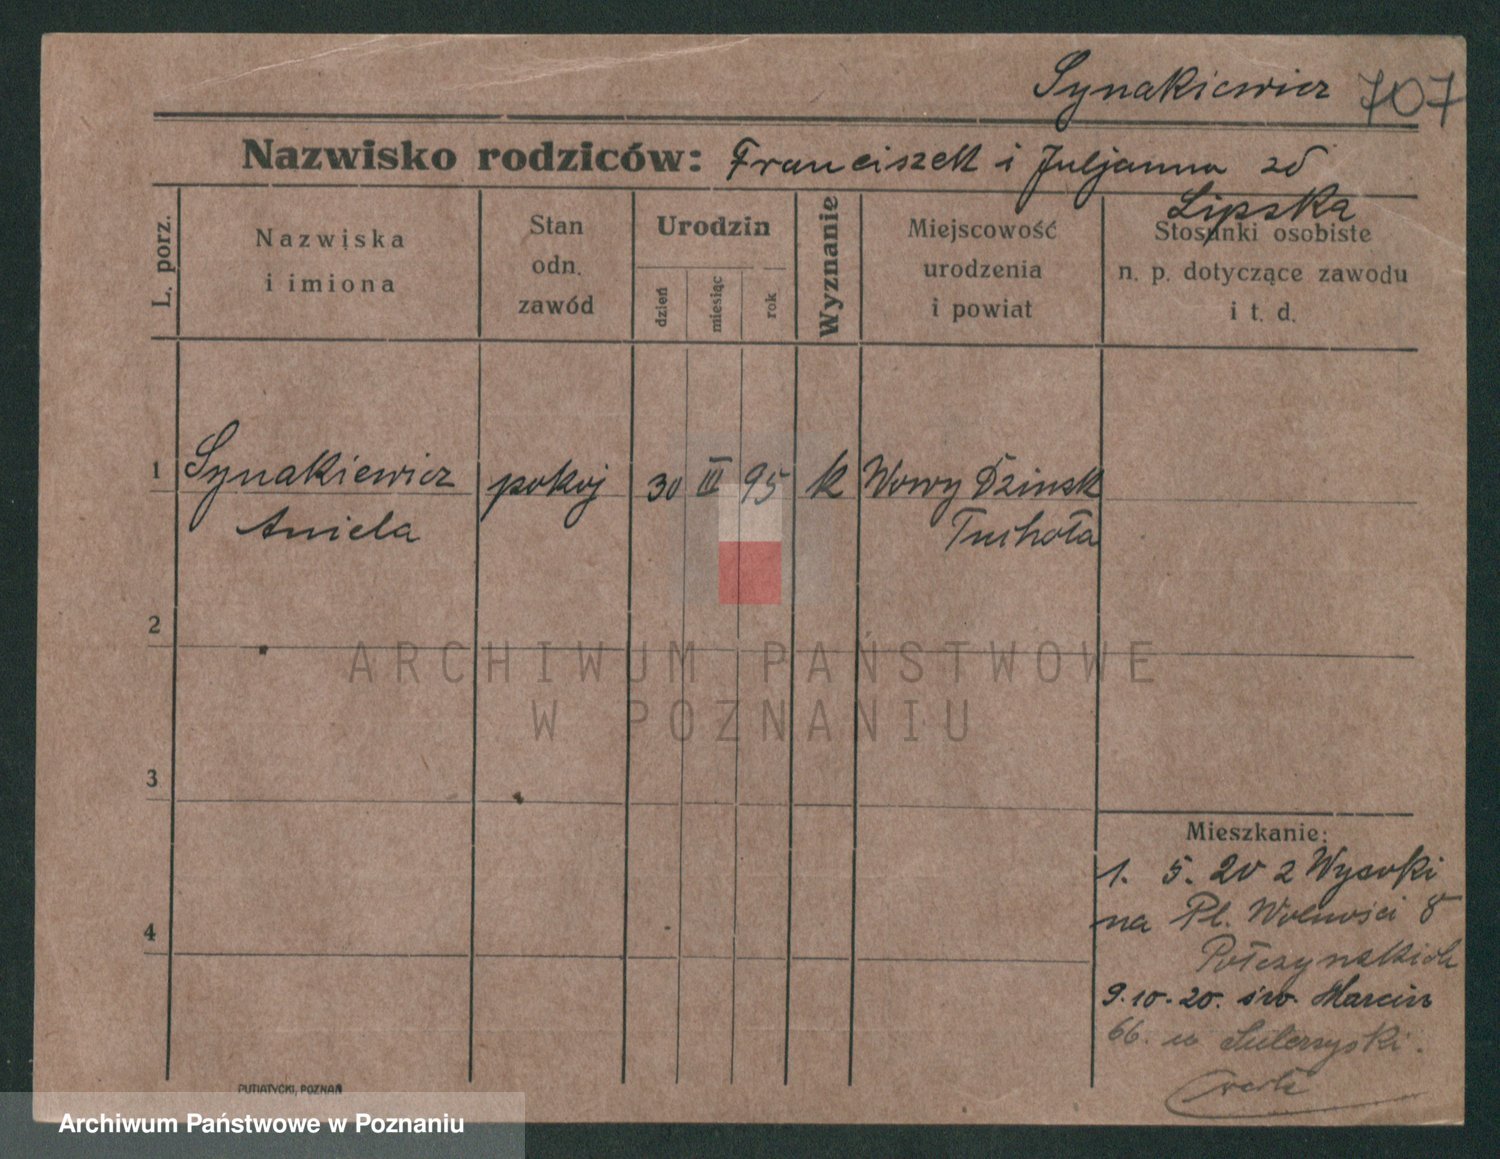 Synakiewicz 707
Nazwisko rodziców: Franciszek i Juljanna zd
Lipska
L. porz.
Nazwiska
i imiona
Stan
odn.
zawód
Urodzin
dzień
miesiąc
rok
Wyznanie
Miejscowość
urodzenia
i powiat
Stosunki osobiste
n. p. dotyczące zawodu
i t. d.
1 Synakiewicz pokoj 30 III 95 k Nowy Dzinsk
Aniela Tuchoła
2
3
4
Mieszkanie:
1. 5. 20 z Wysoki
na Pl. Wolności 8
9.10.20. św. Marcin
66. u
PUTIATYCKI, POZNAŃ
ARCHIWUM PAŃSTWOWE
W POZNANIU
Archiwum Państwowe w Poznaniu